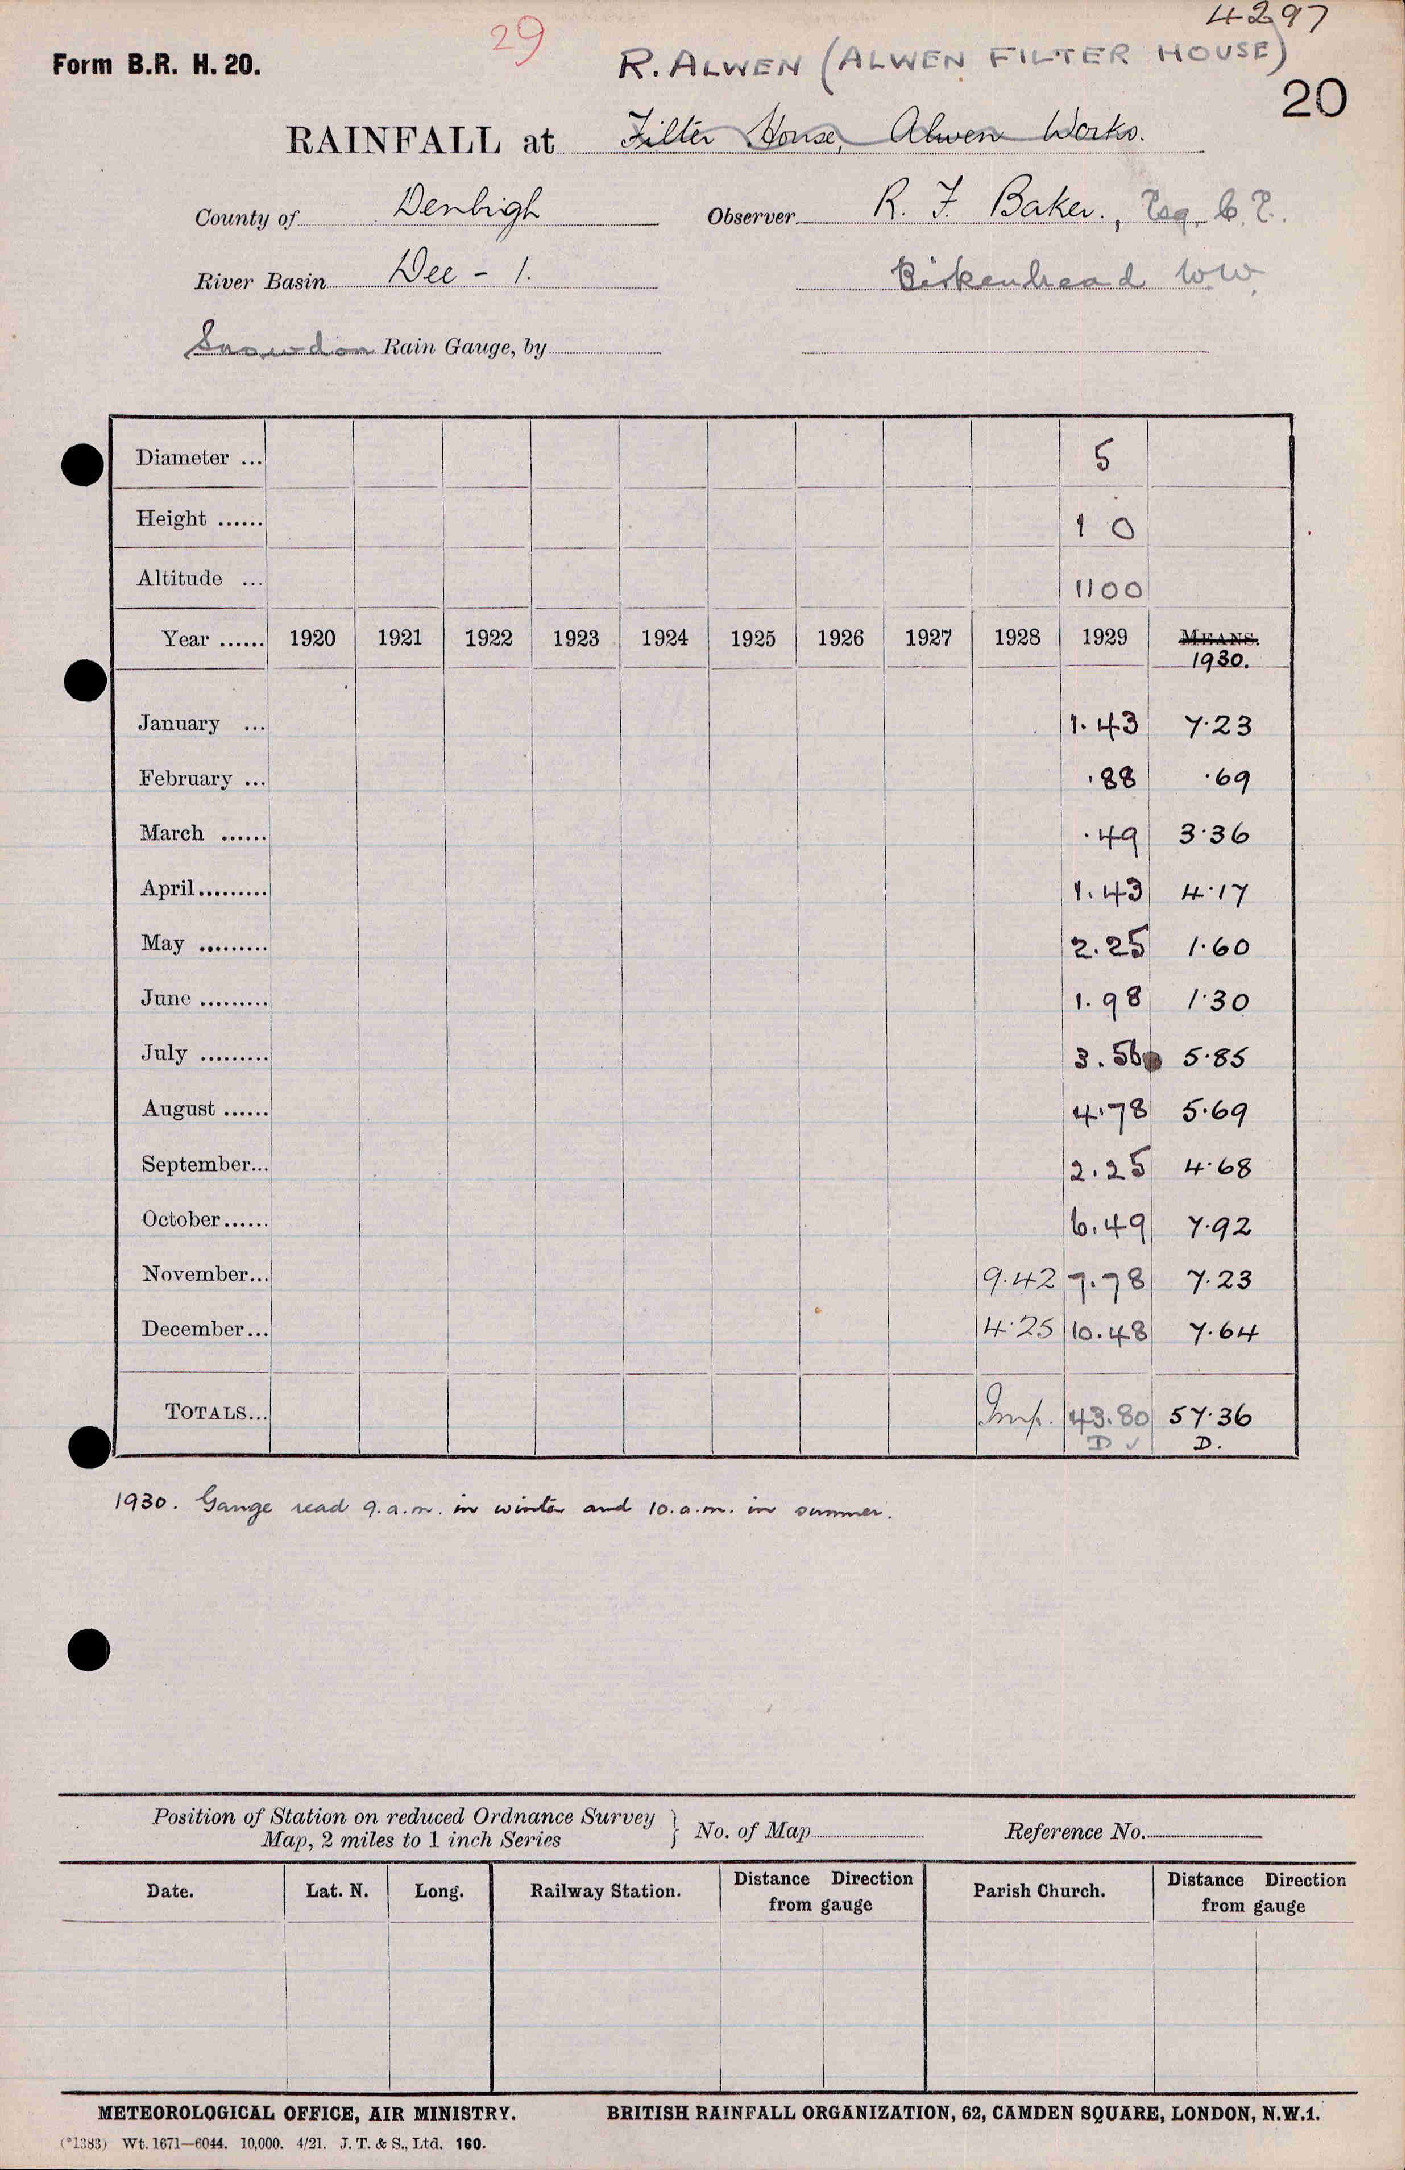 4297
29
Form B.R. H. 20.
R. ALWEN (ALWEN FILTER HOUSE)
20
RAINFALL at Filter House, Alwen Works.
County of Denbigh Observer R. F. Baker., Esq. C.E.
River Basin Dee - 1. Birkenhead W.W.
Snowdon Rain Gauge, by
Diameter ... 5
Height ...... 1 0
Altitude ... 1100
Year ...... 1920 1921 1922 1923 1924 1925 1926 1927 1928 1929 MEANS.
1930.
January ... 1.43 7.23
February ... .88 .69
March ...... .49 3.36
April......... 1.43 4.17
May ......... 2.25 1.60
June ......... 1.98 1.30
July ......... 3.56 5.85
August ...... 4.78 5.69
September... 2.25 4.68
October...... 6.49 7.92
November... 9.42 7.78 7.23
December... 4.25 10.48 7.64
TOTALS... Imp. 43.80 57.36
D ✓ D.
1930. Gauge read 9.a.m. in winter and 10.a.m. in summer.
Position of Station on reduced Ordnance Survey
Map, 2 miles to 1 inch Series } No. of Map Reference No.
Date. Lat. N. Long. Railway Station. Distance Direction from gauge Parish Church. Distance Direction from gauge
METEOROLOGICAL OFFICE, AIR MINISTRY. BRITISH RAINFALL ORGANIZATION, 62, CAMDEN SQUARE, LONDON, N.W.1.
(*1383) Wt. 1671—6044. 10,000. 4/21. J. T. & S., Ltd. 160.